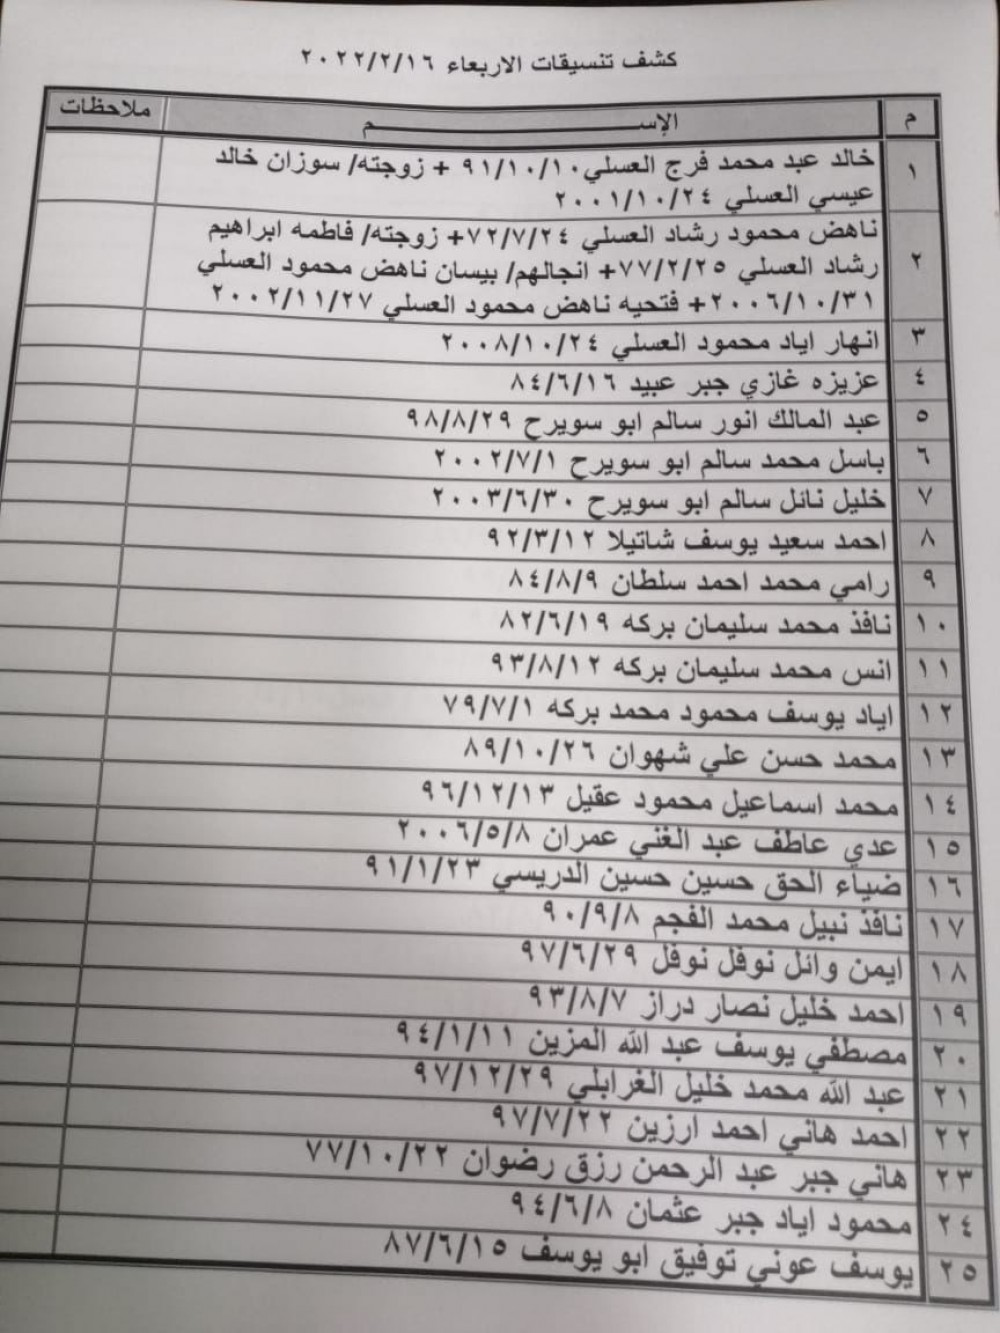 كشف تنسيقات الاربعاء ٢٠٢٢/٢/١٦
م الإســـــم ملاحظات
١ خالد عبد محمد فرج العسلي ٩١/١٠/١٠ + زوجته/ سوزان خالد
عيسي العسلي ٢٠٠١/١٠/٢٤
ناهض محمود رشاد العسلي ٧٢/٧/٢٤+ زوجته/ فاطمه ابراهيم
٢ رشاد العسلي ٧٧/٢/٢٥+ انجالهم/ بيسان ناهض محمود العسلي
٢٠٠٦/١٠/٣١+ فتحيه ناهض محمود العسلي ٢٠٠٢/١١/٢٧
٣ انهار اياد محمود العسلي ٢٠٠٨/١٠/٢٤
٤ عزيزه غازي جبر عبيد ٨٤/٦/١٦
٥ عبد المالك انور سالم ابو سويرح ٩٨/٨/٢٩
٦ باسل محمد سالم ابو سويرح ٢٠٠٢/٧/١
٧ خليل نائل سالم ابو سويرح ٢٠٠٣/٦/٣٠
٨ احمد سعيد يوسف شاتيلا ٩٢/٣/١٢
٩ رامي محمد احمد سلطان ٨٤/٨/٩
١٠ نافذ محمد سليمان بركه ٨٢/٦/١٩
١١ انس محمد سليمان بركه ٩٣/٨/١٢
١٢ اياد يوسف محمود محمد بركه ٧٩/٧/١
١٣ محمد حسن علي شهوان ٨٩/١٠/٢٦
١٤ محمد اسماعيل محمود عقيل ٩٦/١٢/١٣
١٥ عدي عاطف عبد الغني عمران ٢٠٠٦/٥/٨
١٦ ضياء الحق حسين حسين الدريسي ٩١/١/٢٣
١٧ نافذ نبيل محمد الفجم ٩٠/٩/٨
١٨ ايمن وائل نوفل نوفل ٩٧/٦/٢٩
١٩ احمد خليل نصار دراز ٩٣/٨/٧
٢٠ مصطفي يوسف عبد الله المزين ٩٤/١/١١
٢١ عبد الله محمد خليل الغرابلي ٩٧/١٢/٢٩
٢٢ احمد هاني احمد ارزين ٩٧/٧/٢٢
٢٣ هاني جبر عبد الرحمن رزق رضوان ٧٧/١٠/٢٢
٢٤ محمود اياد جبر عثمان ٩٤/٦/٨
٢٥ يوسف عوني توفيق ابو يوسف ٨٧/٦/١٥